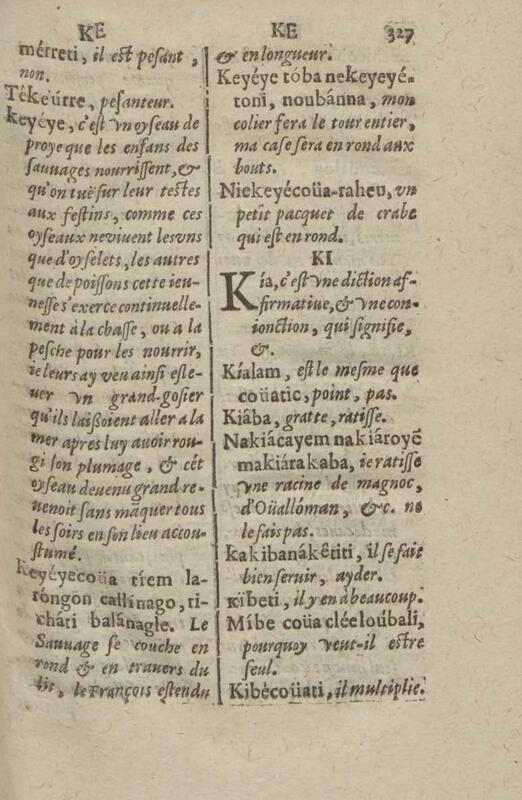 KE
mérreti, il est pesant,
non.
Tékeúrre, pesanteur.
Keyéye, c'est vn oyseau de
proye que les enfans des
sauuages nourrissent, &
qu'on tuë sur leur testes
aux festins, comme ces
oyseaux ne viuent les vns
que d'oyselets, les autres
que de poissons cette ieu-
nesse s'exerce continuelle-
ment à la chasse, ou a la
pesche pour les nourrir,
ie leurs ay veu ainsi esle-
uer vn grand-gosier
qu'ils laißoient aller a la
mer apres luy auoir rou-
gi son plumage, & cét
oyseau deuenu grand re-
uenoit sans māquer tous
les soirs en son lieu accou-
stumé.
Keyéyecoüa tíem la-
róngon callínago, ti-
cháti balánagle. Le
Sauuage se couche en
rond & en trauers du
lit, le François estendu
KE 327
& en longueur.
Keyéye tóba nekeyeyé-
toni, noubánna, mon
colier fera le tour entier,
ma case sera en rond aux
bouts.
Niekeyécoüa-raheu, vn
petit pacquet de crabe
qui est en rond.
KI
Kía, c'est vne diction af-
firmatiue, & vne con-
ionction, qui signifie,
&.
Kíalam, est le mesme que
coüatic, point, pas.
Kiába, gratte, ratisse.
Nakiácayem nakiároyē
makiárakaba, ie ratisse
vne racine de magnoc,
d'Oüallóman, &c. ne
le fais pas.
kakibanákêtiti, il se fait
bien seruir, ayder.
kïbeti, il y en à beaucoup.
Míbe coüa cléeloúbali,
pourquoy veut-il estre
seul.
Kibécoüati, il multiplie.